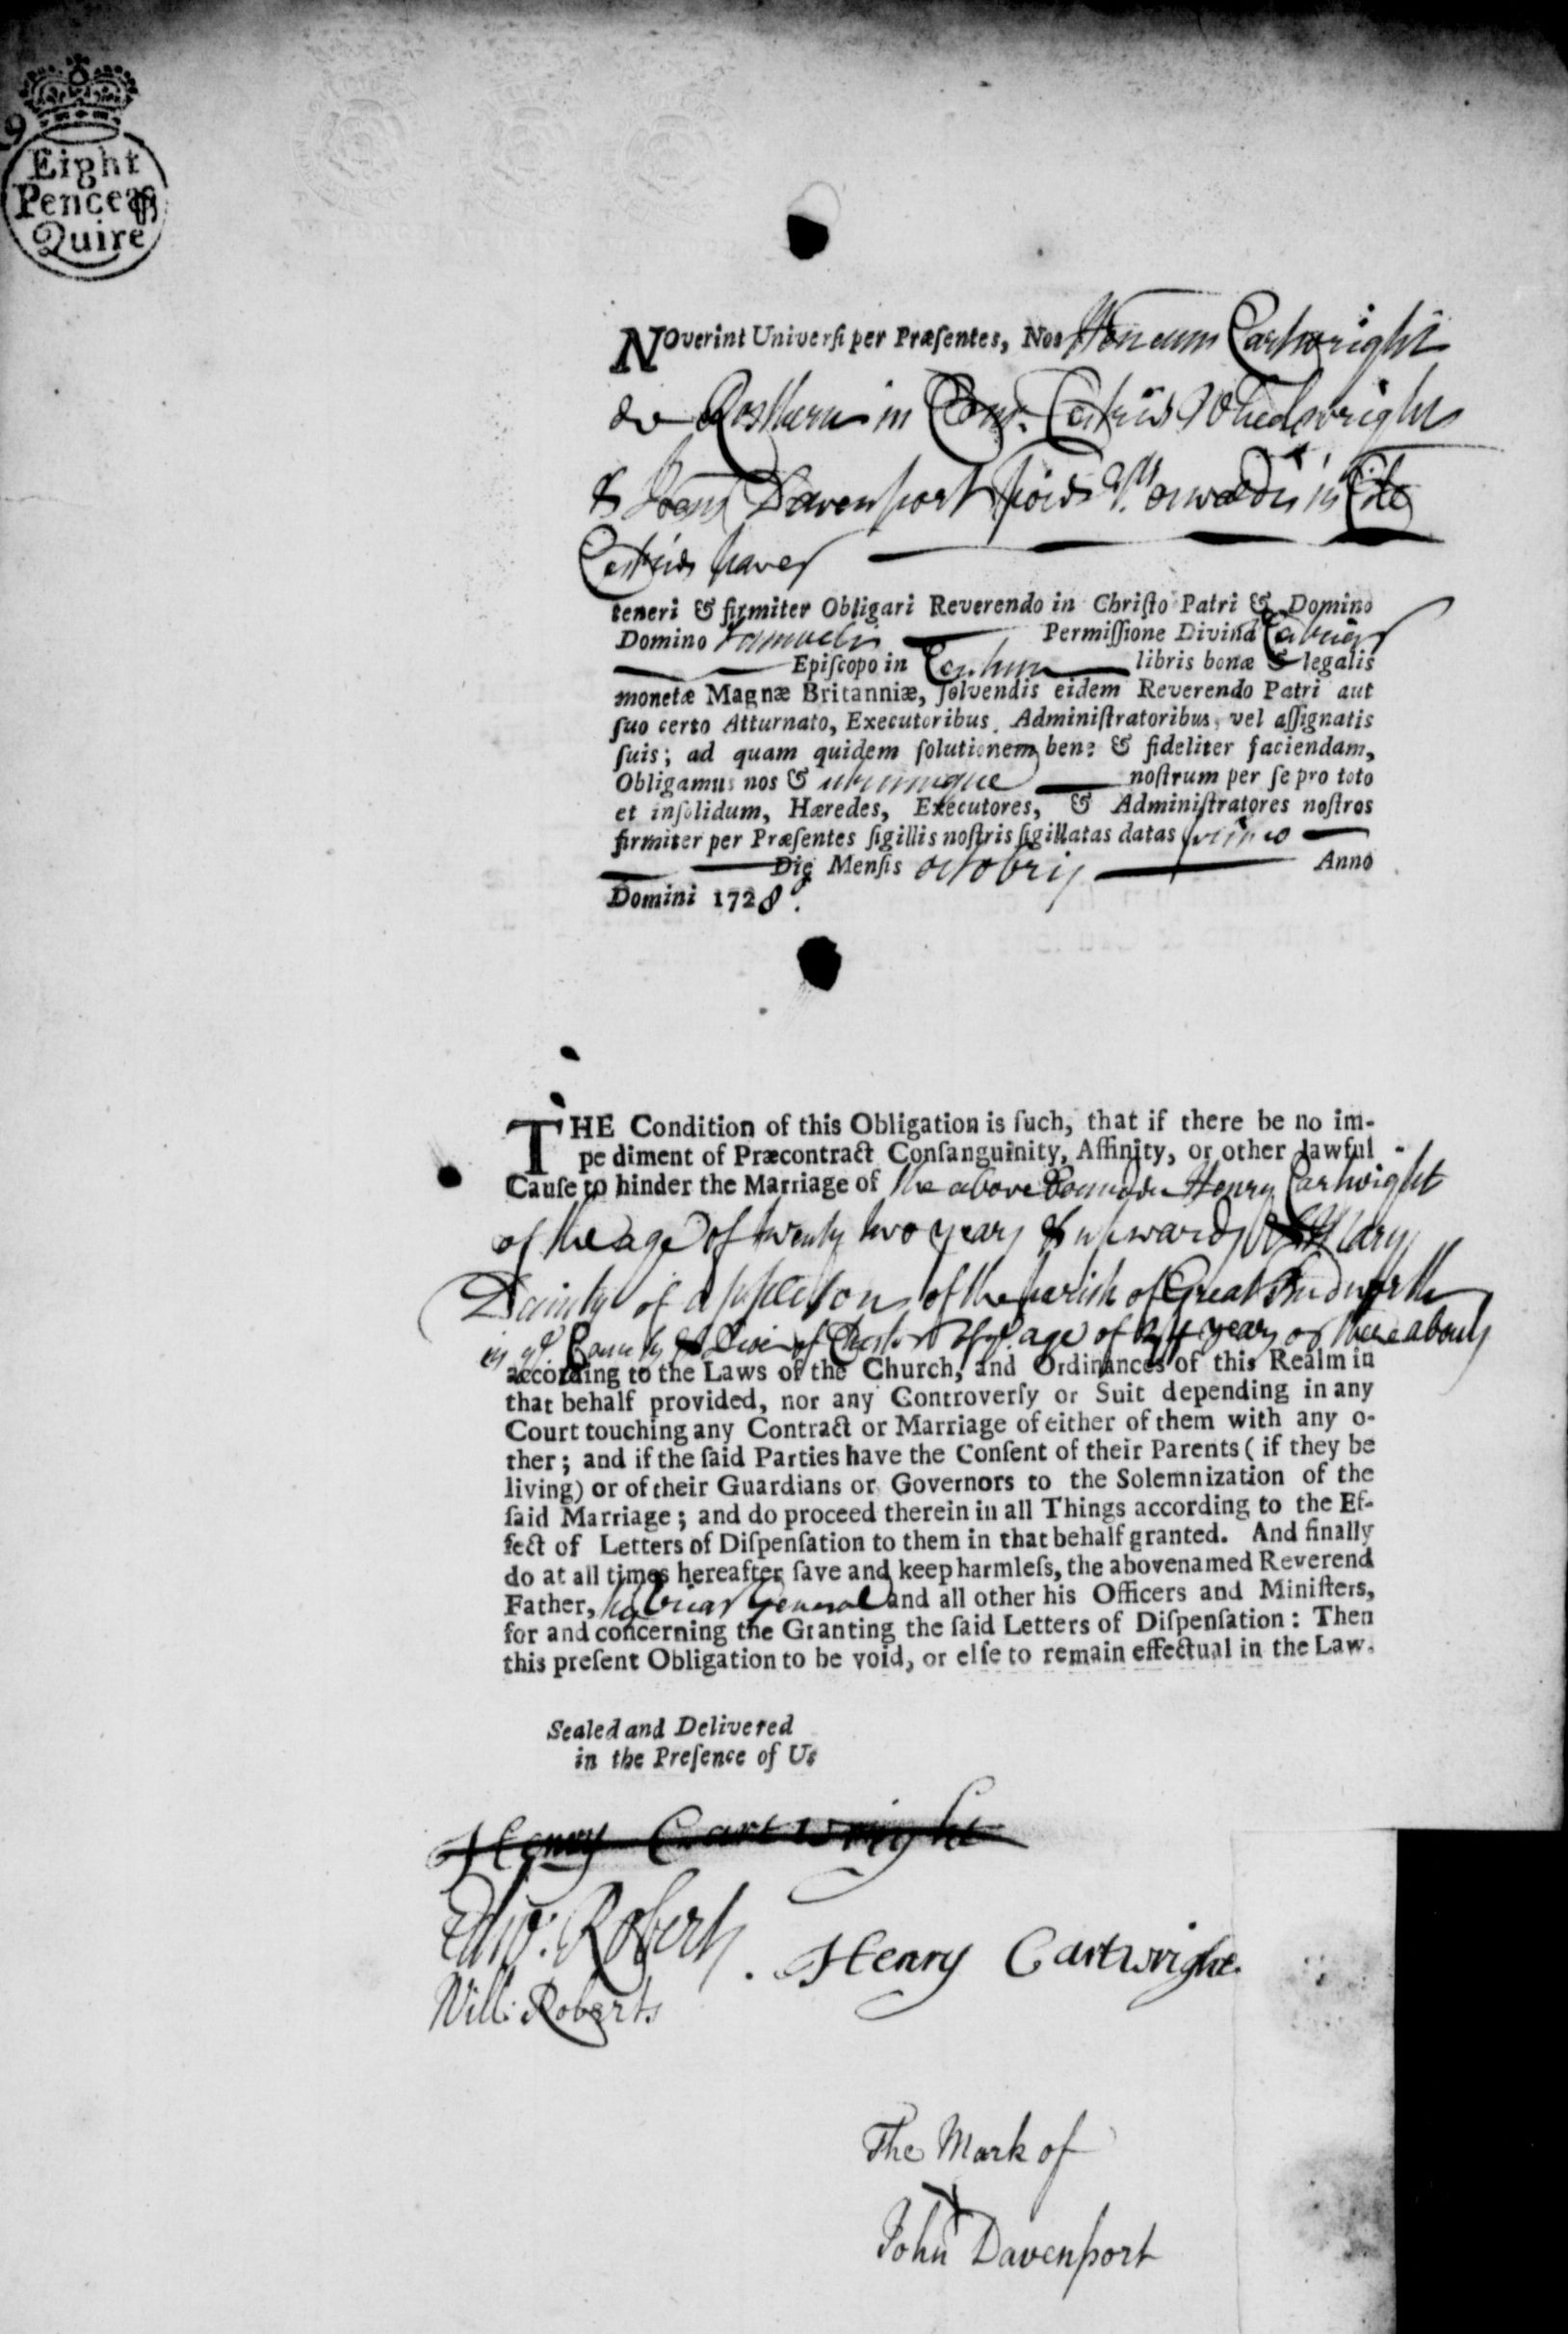 Eight
Pence a
Quire
NOverint Universi per Præsentes, Nos Henricum Cartwright
de Rosthern in Com. Cestriæ Wheelwright
& Davenport in
Cestriæ
teneri & firmiter Obligari Reverendo in Christo Patri & Domino
Domino Samueli Permissione Divinâ
Episcopo in Centum libris bonæ & legalis
monetæ Magnæ Britanniæ, solvendis eidem Reverendo Patri aut
suo certo Atturnato, Executoribus, Administratoribus, vel assignatis
suis; ad quam quidem solutionem bene & fideliter faciendam,
Obligamus nos & utrumque nostrum per se pro toto
et insolidum, Hæredes, Executores, & Administratores nostros
firmiter per Præsentes sigillis nostris sigillatas datas primo
Die Mensis Octobris Anno
Domini 1728.
THE Condition of this Obligation is such, that if there be no im-
pediment of Præcontract Consanguinity, Affinity, or other lawful
Cause to hinder the Marriage of the above Bounden Henry Cartwright
of the age of twenty two years & upwards & Mary
Dainty of Appleton of the parish of Great Budworth
in ye County & of Chester of ye age of 24 years or thereabouts
according to the Laws of the Church, and Ordinances of this Realm in
that behalf provided, nor any Controversy or Suit depending in any
Court touching any Contract or Marriage of either of them with any o-
ther; and if the said Parties have the Consent of their Parents (if they be
living) or of their Guardians or Governors to the Solemnization of the
said Marriage; and do proceed therein in all Things according to the Ef-
fect of Letters of Dispensation to them in that behalf granted. And finally
do at all times hereafter save and keep harmless, the abovenamed Reverend
Father, his Vicar General and all other his Officers and Ministers,
for and concerning the Granting the said Letters of Dispensation: Then
this present Obligation to be void, or else to remain effectual in the Law.
Sealed and Delivered
in the Presence of Us
Henry Cartwright
Edw: Roberts
Henry Cartwright
Will: Roberts
The Mark of
John Davenport